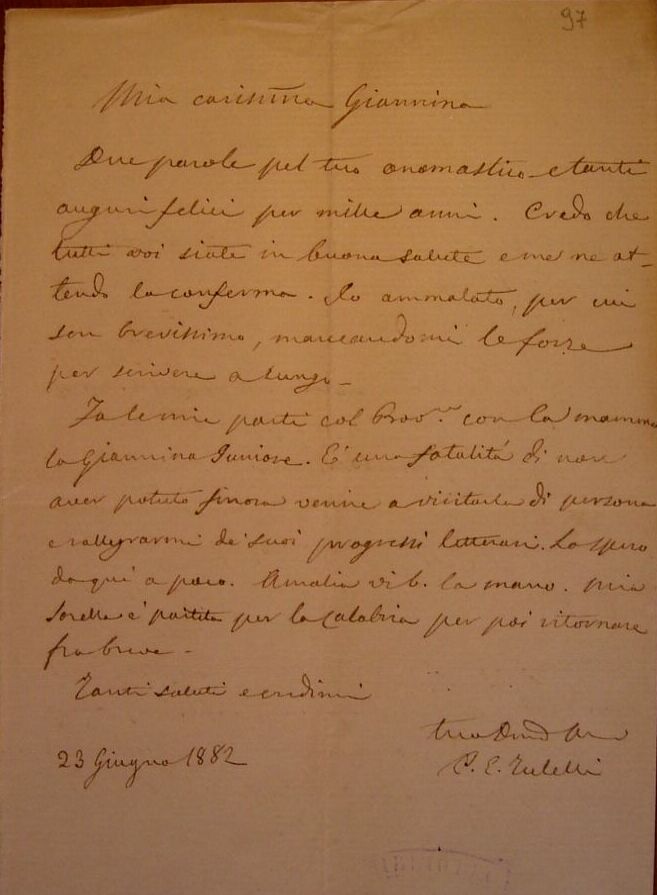 97
Mia carissima Giannina
Due parole pel tuo onomastico e tanti
auguri felici per mille anni. Credo che
tutti voi siate in buona salute e me ne at-
tendo la conferma. Io ammalato, per cui
son brevissimo, mancandomi le forze
per scrivere a lungo -
Fa le mie parti col con la mamma
la Giannina Juniore. E' una fatalità di non
aver potuto finora venire a visitarla di persona
e rallegrarmi de' suoi progressi letterari. Lo spero
da qui a poco. Amalia vi b. la mano. Mia
sorella è partita per la Calabria per poi ritornare
fra breve -
Tanti saluti e credimi
tuo
23 Giugno 1882